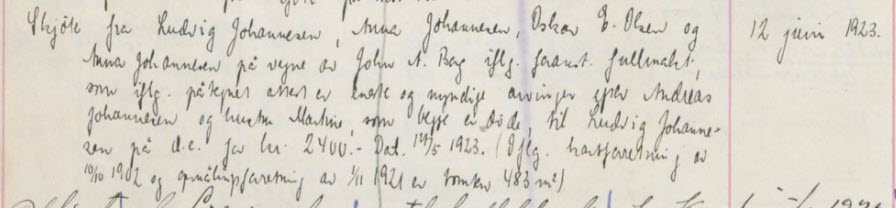 Skjöte fra Ludvig Johannesen, Anna Johannesen, Oskar E. Olsen og 12 juni 1923.
Anna Johannesen på vegne av John A. Berg iflg. foranst. fullmakt,
som iflg. påtegnet attest er eneste og myndige arvinger efter Andreas
Johannesen og hustru Martine, som begge er döde, til Ludvig Johanne-
sen på d.e. for kr. 2400.- Dat. 12/5 1923. (Iflg. kartforretning av
10/10 1902 og opmålingsforretning av 1/11 1921 er tomten 483 m²)